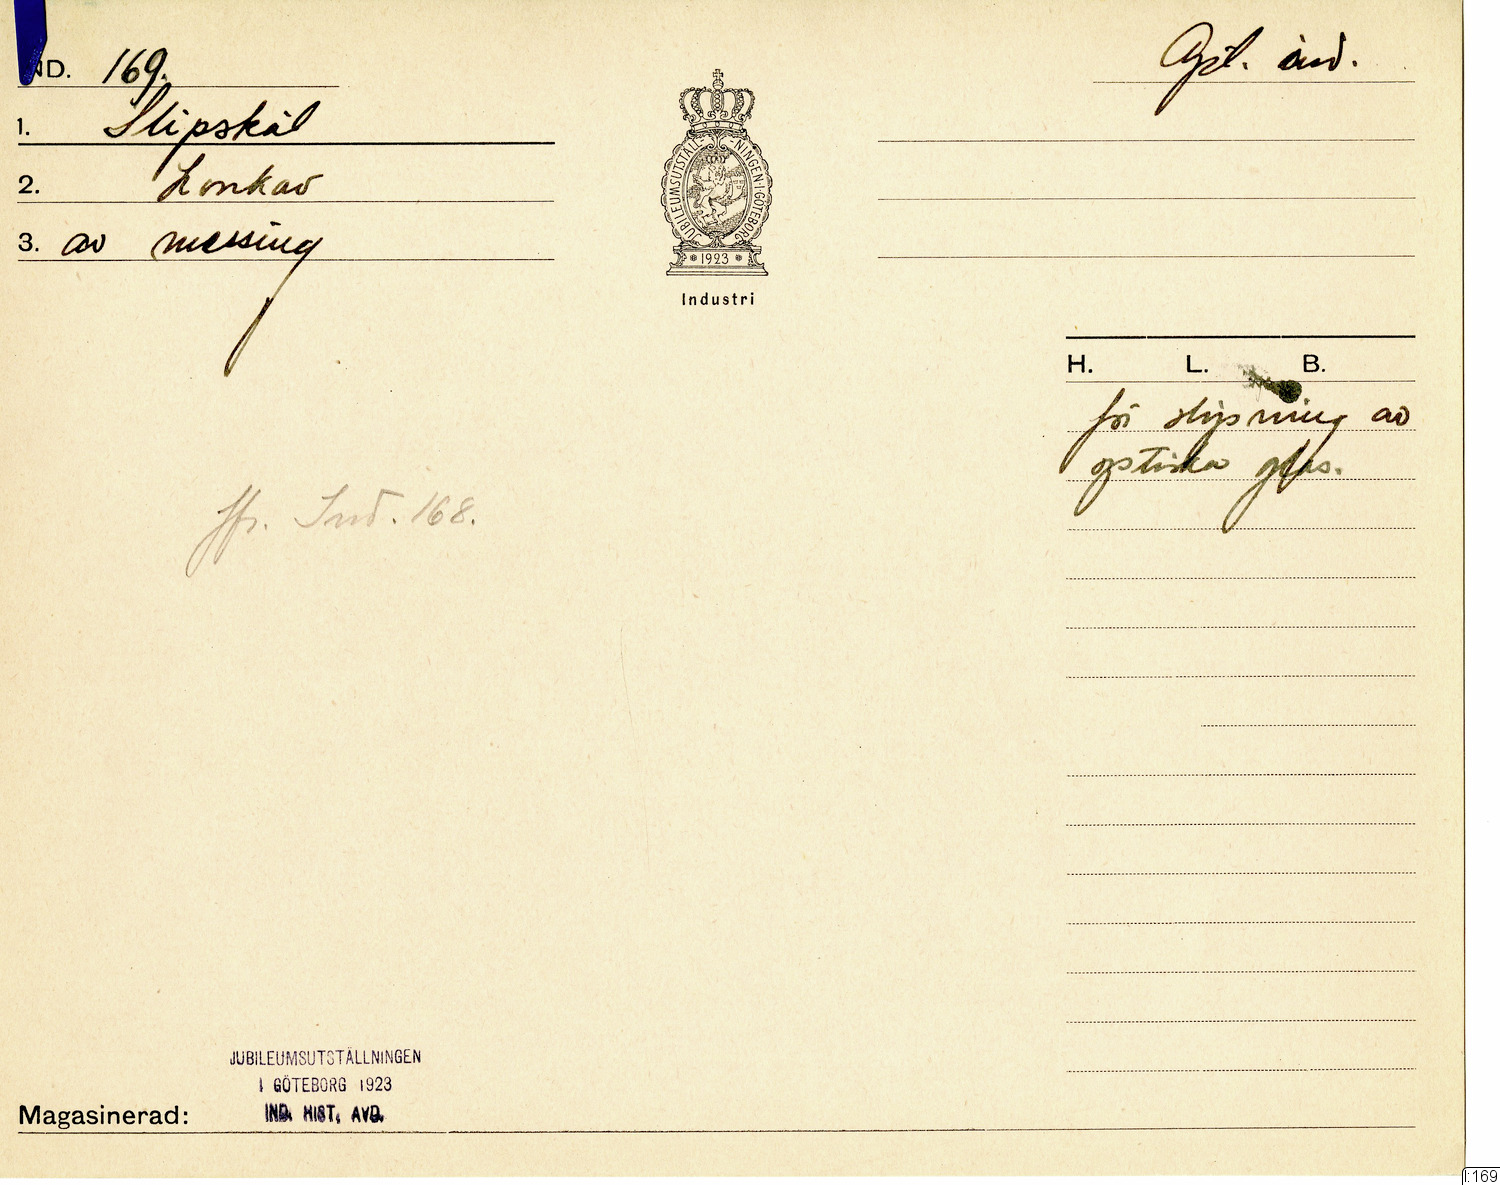 IND. 169.
1. Slipskål
2. konkav
3. av messing
JUBILEUMSUTSTÄLL-NINGEN·I·GÖTEBORG
1923
Industri
ind.
H. L. B.
för slipning av
optiska glas.
Jfr. Ind. 168.
JUBILEUMSUTSTÄLLNINGEN
I GÖTEBORG 1923
IND. HIST. AVD.
Magasinerad:
I:169